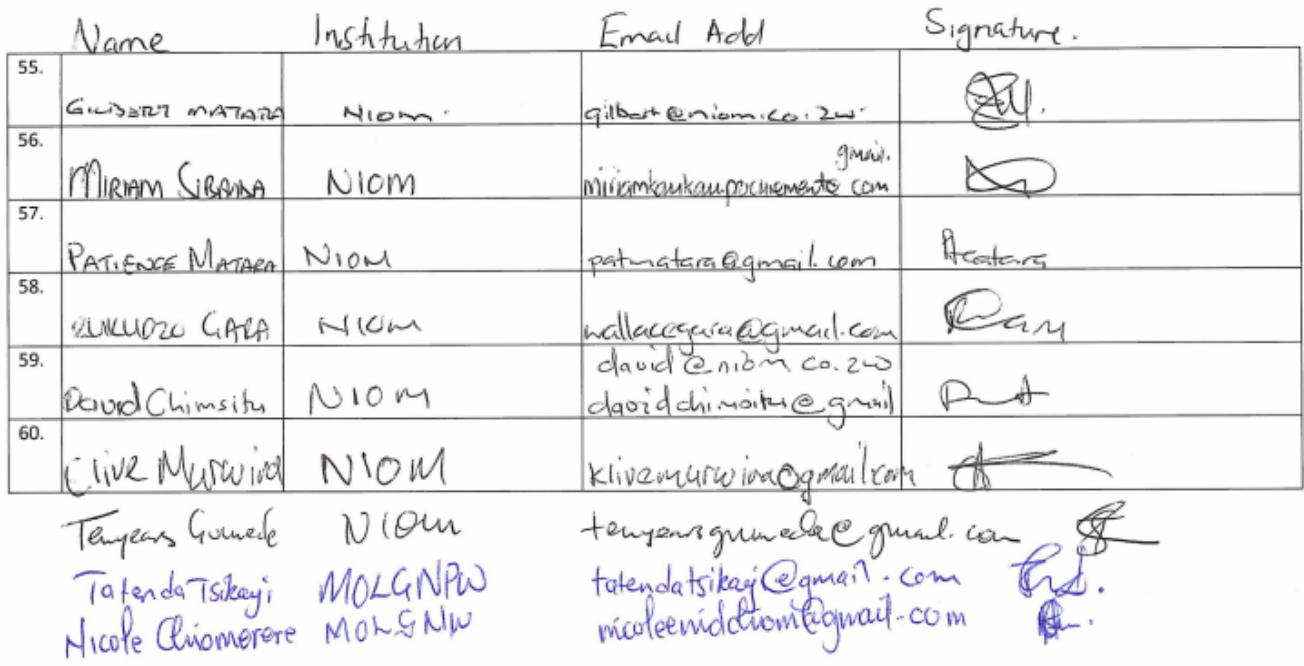 Name Institution Email Add Signature.
55. GILBERT MATARA NIOM. gilbert@niom.co.zw.
gmail.
56. MIRIAM SIBANDA NIOM miriamkaukauprocurements com
57. PATIENCE MATARA NIOM patmatara@gmail.com Matara
58. KUKUDZO GARA NIOM wallacegara@gmail.com
david@niom co.zw
59. David Chimsitu NIOM davidchimsitu@gmail
60. Clive Murwira NIOM klivemurwira@gmail.com
Tenyears Gumede NIOM tenyearsgumede@gmail.com
Tatenda Tsikayi MOLGNPW tatendatsikayi@gmail.com
Nicole Chiomerere MOLGNW nicoleenidchiom@gmail.com